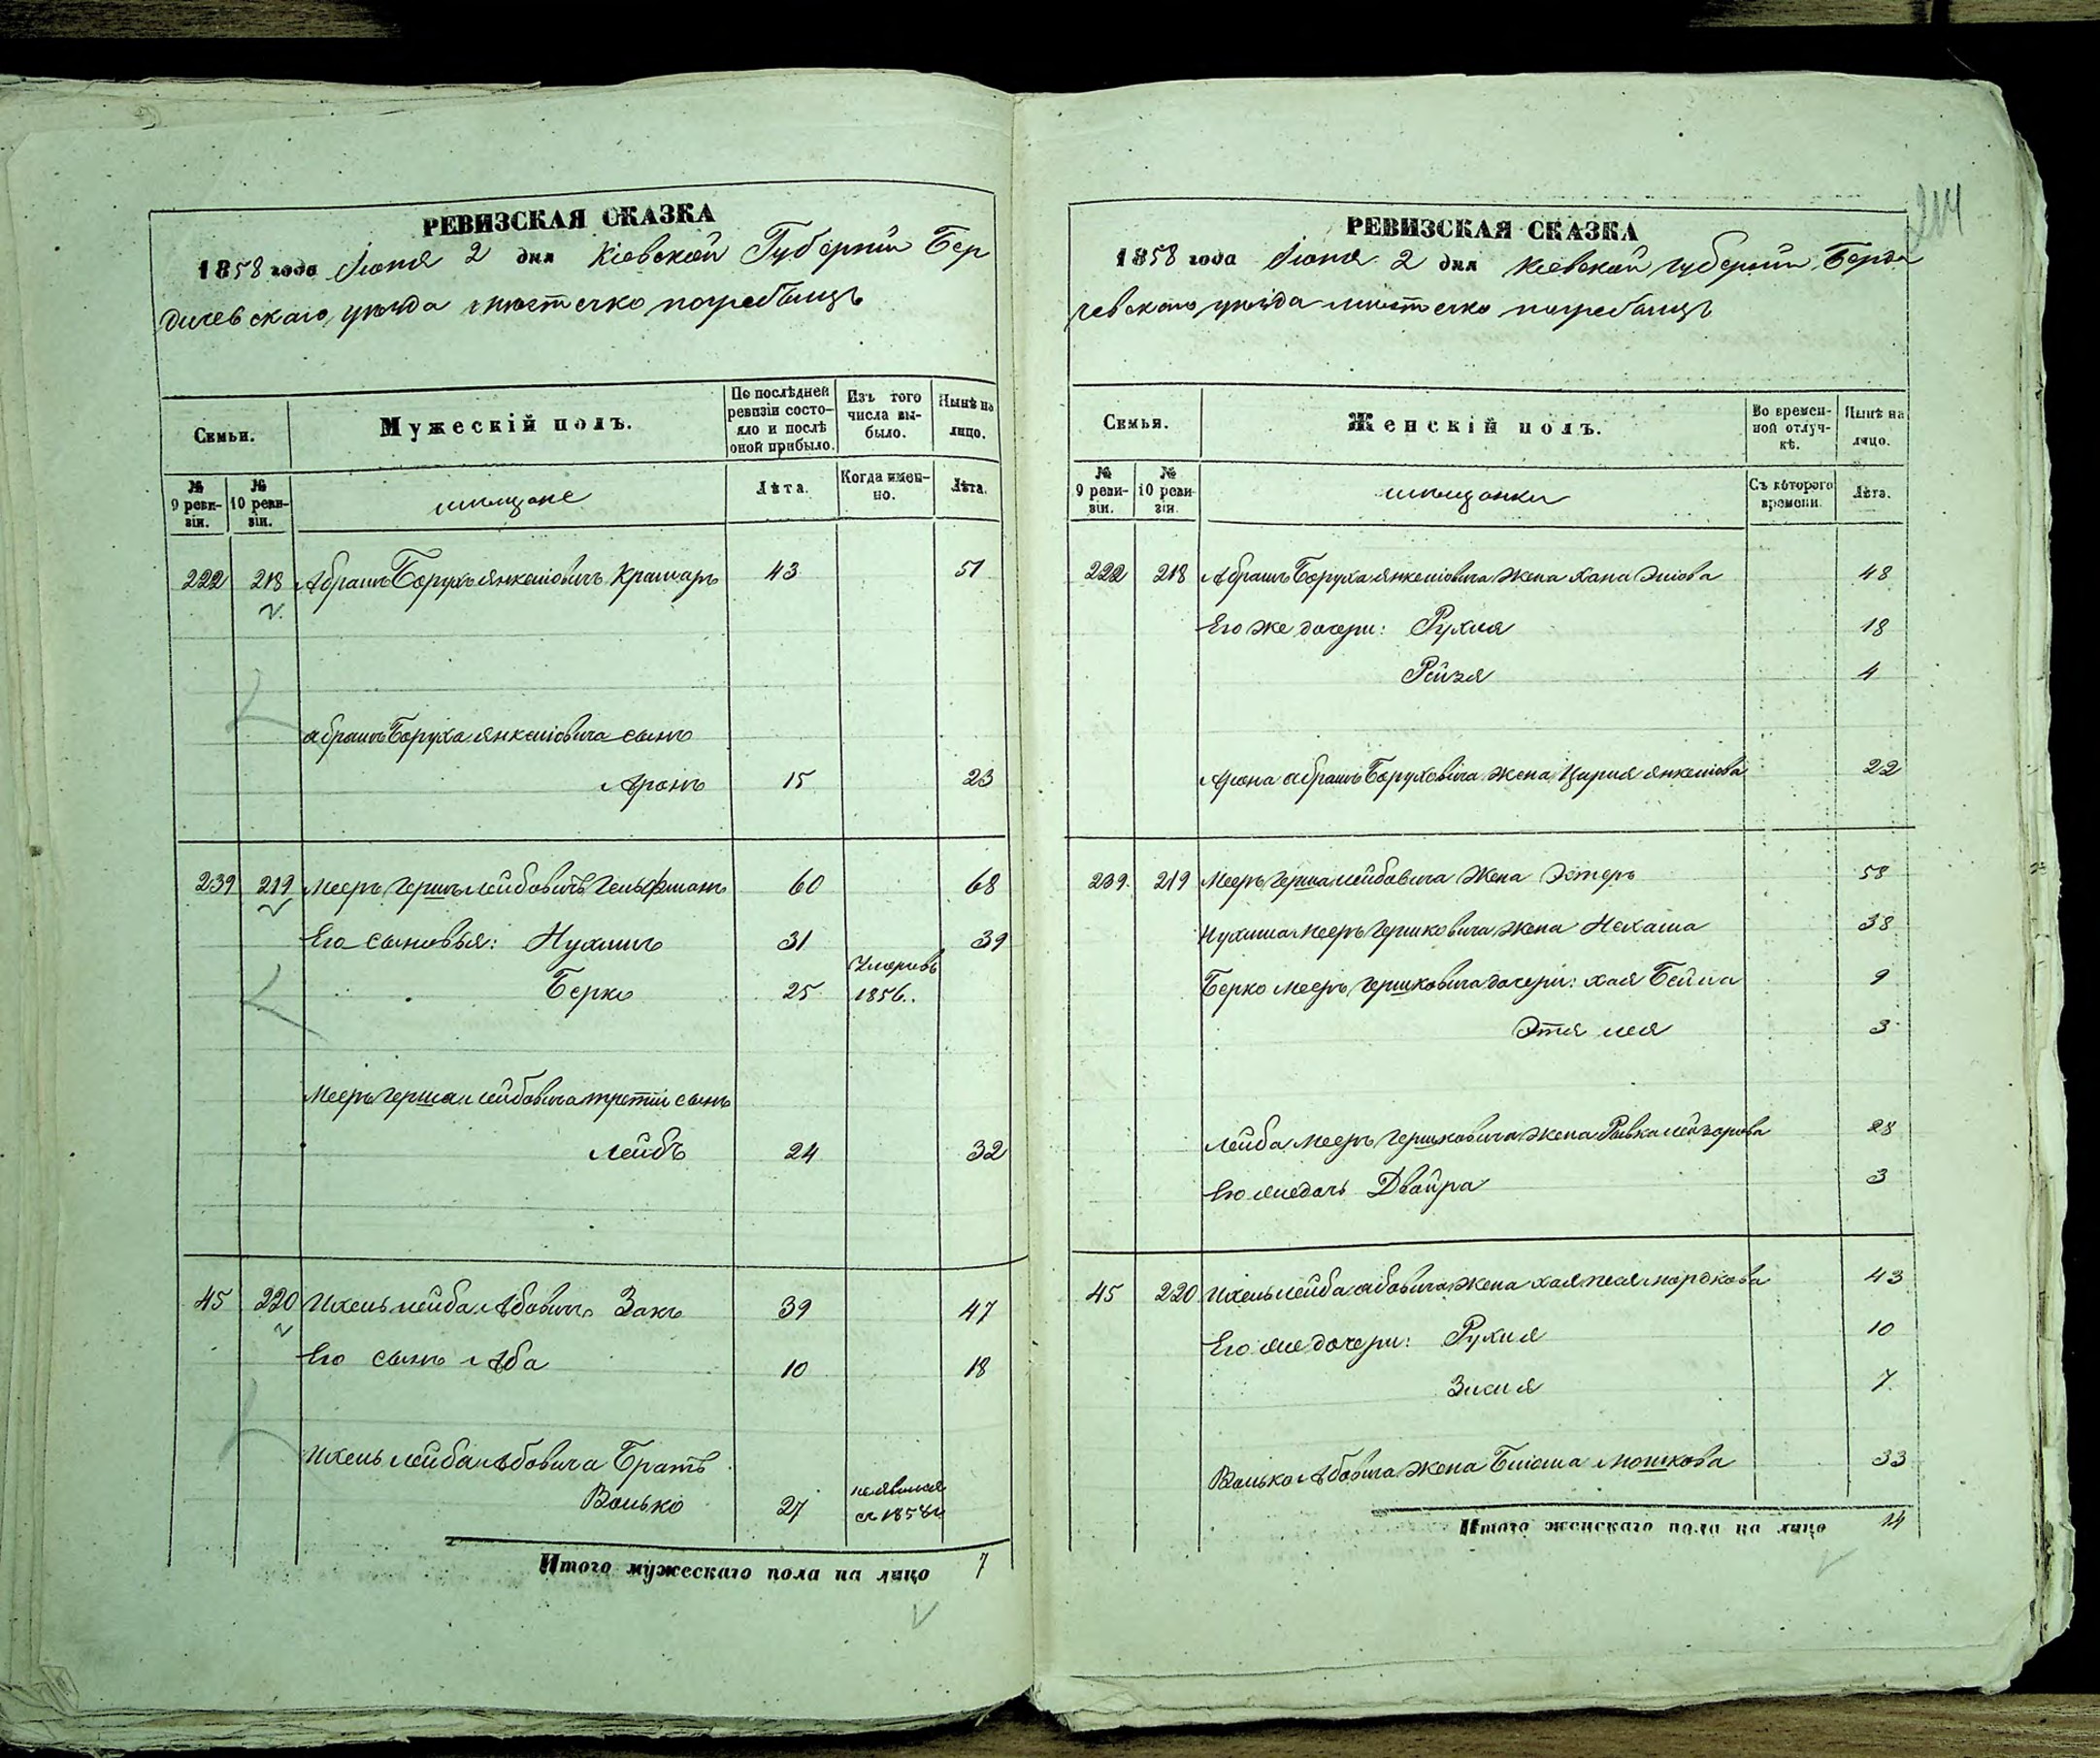 214
РЕВИЗСКАЯ СКАЗКА
1858 года Іюня 2 дня Кіевской Губерніи Бер
дичевскаго уѣзда мѣстечко погребыщъ
Семьи.
Мужескій полъ.
По послѣдней ревизіи состояло и послѣ оной прибыло.
Изъ того числа выбыло.
Нынѣ на лицо.
№ 9 ревизіи.
№ 10 ревизіи.
мѣщане
Лѣта.
Когда именно.
Лѣта.
222 218 Абрамъ Борухъ Янкелювичъ Крамаръ 43 51
Абрамъ Боруха Янкелювича сынъ
Аронъ 15 23
239 219 Мееръ Гершъ Лейбовичъ Гельфманъ 60 68
Его сыновья: Нухимъ 31 39
Берко 25 Умеръ въ 1856.
Мееръ Герша Лейбовича третій сынъ
Лейбъ 24 32
45 220 Ихель Лейба Абовичъ Закъ 39 47
Его сынъ Аба 10 18
Ихель Лейба Абовича Братъ
Волько 27 1858
Итого мужескаго пола на лицо 7
РЕВИЗСКАЯ СКАЗКА
1858 года Іюня 2 дня Кіевской губерніи Берди
чевскаго уѣзда мѣстечко погребыщъ
Семья.
Женскій полъ.
Во временной отлучкѣ.
Нынѣ на лицо.
№ 9 ревизіи.
№ 10 ревизіи.
мѣщанки
Съ котораго времени.
Лѣта.
222 218 Абрамъ Боруха Янкелювича жена Хана 48
Его же дочери: Рухля 18
Рейзя 4
Арона Абрамъ Боруховича жена Цирля Янкелева 22
239. 219 Мееръ Герша Лейбовича жена Эстеръ 58
Нухима Мееръ Гершковича жена Нехама 38
Берко Мееръ Гершковича дочери: Хая Бейла 9
Этя Лея 3
Лейба Мееръ Гершковича жена Ривка Лейзорова 28
Его же дочь Двойра 3
45 220 Ихель Лейба Абовича жена Хая Песя Мордкова 43
Его же дочери: Рухля 10
Зисля 7
Волько Абовича жена Блюма Мошкова 33
Итого женскаго пола на лицо 14